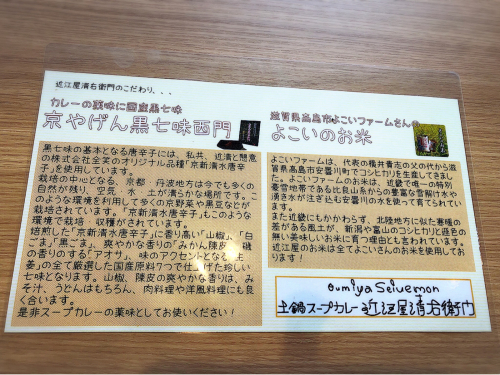 近江屋清右衛門のこだわり、、、
カレーの薬味に国産黒七味
京やげん黒七味西門
黒七味の基本となる唐辛子には、私共、近清と懇意
の株式会社全笑のオリジナル品種「京新清水唐辛
子」を使用しています。
栽培の中心となる、京都 丹波地方は今でも多くの
自然が残り、空気 水 土が清らかな場所です。こ
のような環境を利用して多くの京野菜や黒豆などが
栽培されています。「京新清水唐辛子」もこのような
環境で栽培 収穫がされています。
焙煎した「京新清水唐辛子」に香り高い「山椒」、「白
ごま」「黒ごま」 爽やかな香りの「みかん陳皮」、磯
の香りのする「アオサ」、味のアクセントとなる「生
姜」の全て厳選した国産原料7つで仕上げた珍しい
七味となります。山椒、陳皮の爽やかな香りは、み
そ汁、うどんはもちろん、肉料理や洋風料理にも良
く合います。
是非スープカレーの薬味としてお使いください!
滋賀県高島市よこいファームさんの
よこいのお米
よこいファームは、代表の横井貴志の父の代から滋
賀県高島市安曇川町でコシヒカリを生産してきまし
た。よこいファームのお米は、近畿で唯一の特別
豪雪地帯である比良山系からの豊富な雪解け水や
湧き水が注ぎ込む安曇川の水を使って育てられてい
ます。
また近畿にもかかわらず、北陸地方に似た寒暖
の差がある風土が、新潟や富山のコシヒカリと遜色
の無い美味しいお米に育つ理由とも言われています。
近江屋のお米は全てよこいさんのお米を使用してお
ります!
Oumiya Seiuemon
土鍋スープカレー 近江屋清右衛門